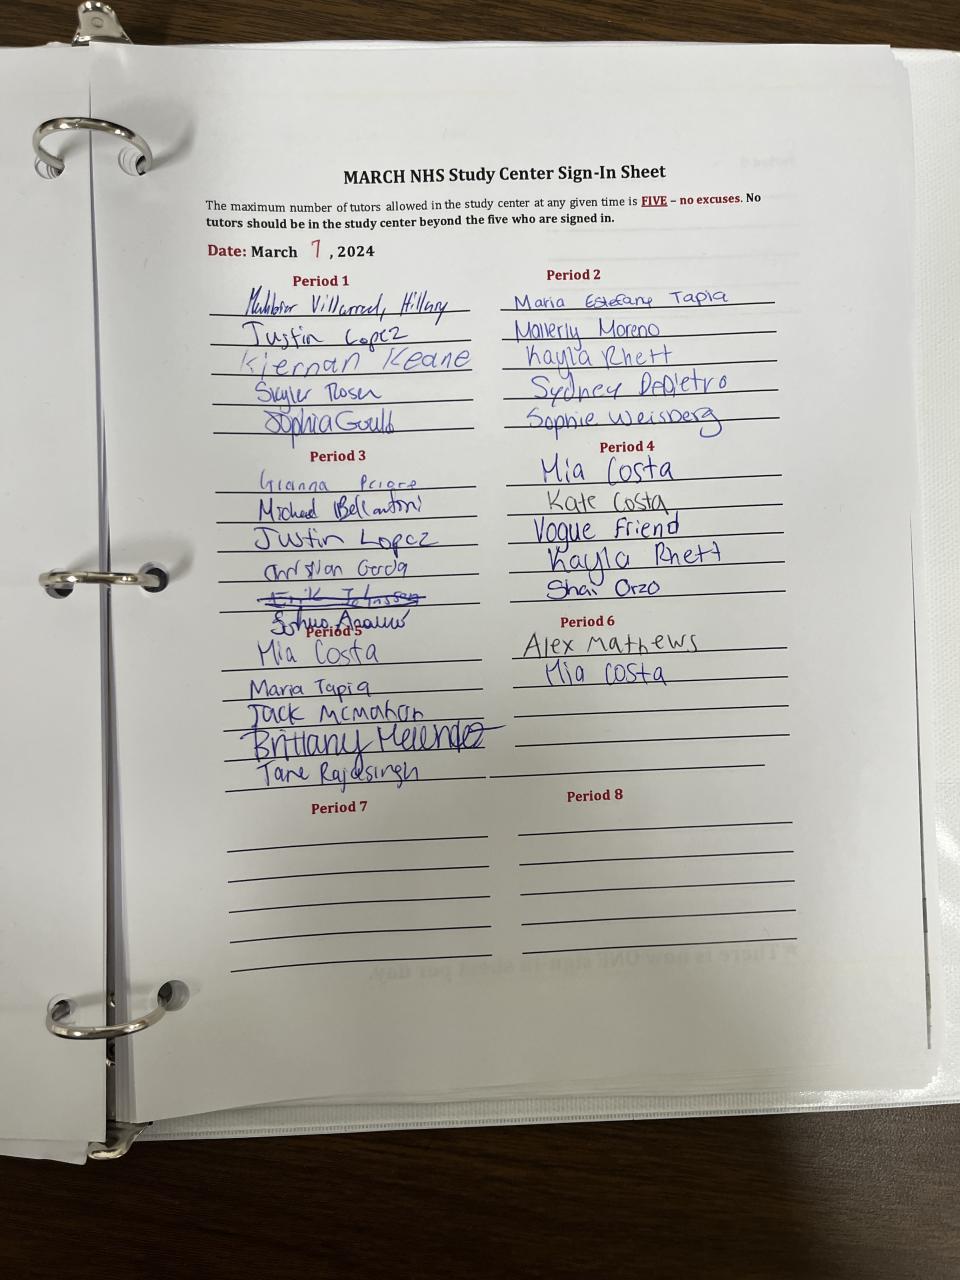 MARCH NHS Study Center Sign-In Sheet
The maximum number of tutors allowed in the study center at any given time is FIVE – no excuses. No
tutors should be in the study center beyond the five who are signed in.
Date: March 7, 2024
Period 1
Villarreal, Hillary
Justin Lopez
Kiernan Keane
Skyler Rosen
Sophia Gould
Period 2
Maria Estefany Tapia
Mallerly Moreno
Kayla Rhett
Sydney DePietro
Sophie Weisberg
Period 3
Gianna
Michael Bellantoni
Justin Lopez
Christian
Erik
Period 4
Mia Costa
Kate Costa
Vogue Friend
Kayla Rhett
Shai Orzo
Period 5
Mia Costa
Maria Tapia
Jack McMahon
Brittany Melendez
Jane Rajasingh
Period 6
Alex Mathews
Mia Costa
Period 7
Period 8